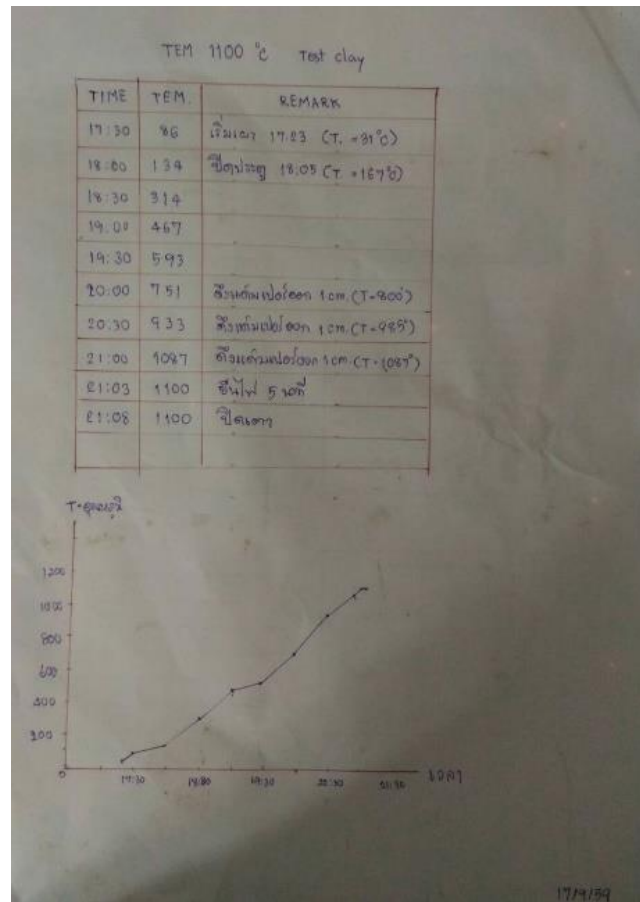 TEM 1100 °C Test clay
TIME TEM. REMARK
17:30 86 เริ่มเผา 17:23 (T. = 31°C)
18:00 134 ปิดประตู 18:05 (T = 167°C)
18:30 314
19:00 467
19:30 593
20:00 751 ดึงแด้มเปอร์ออก 1 cm. (T-800°)
20:30 933 ดึงแด้มเปอร์ออก 1 cm. (T-985°)
21:00 1087 ดึงแด้มเปอร์ออก 1 cm. (T-1087°)
21:03 1100 ยืนไฟ 5 นาที
21:08 1100 ปิดเตา
T-อุณหภูมิ
1200
1000
800
600
400
200
0
17:30 18:30 19:30 20:30 21:30 เวลา
17/9/59